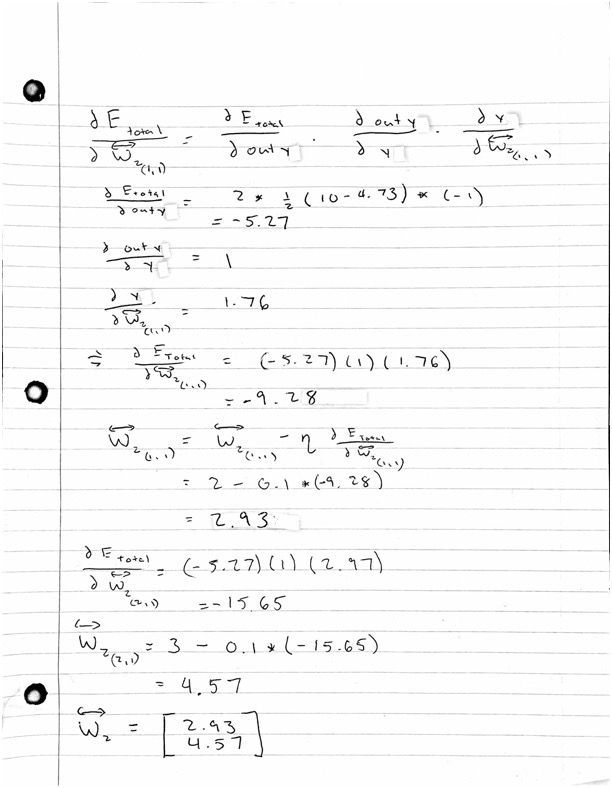 ∂E_total / ∂W⃡_2(1,1) = ∂E_total / ∂out y · ∂out y / ∂y · ∂y / ∂W⃡_2(1,1)
∂E_total / ∂out y = 2 * 1/2 (10 - 4.73) * (-1)
= -5.27
∂out y / ∂y = 1
∂y / ∂W⃡_2(1,1) = 1.76
⇒ ∂E_Total / ∂W⃡_2(1,1) = (-5.27)(1)(1.76)
= -9.28
W⃡_2(1,1) = W⃡_2(1,1) - η ∂E_Total / ∂W⃡_2(1,1)
= 2 - 0.1 * (-9.28)
= 2.93
∂E_total / ∂W⃡_2(2,1) = (-5.27)(1)(2.97)
= -15.65
W⃡_2(2,1) = 3 - 0.1 * (-15.65)
= 4.57
W⃡_2 = [2.93
4.57]